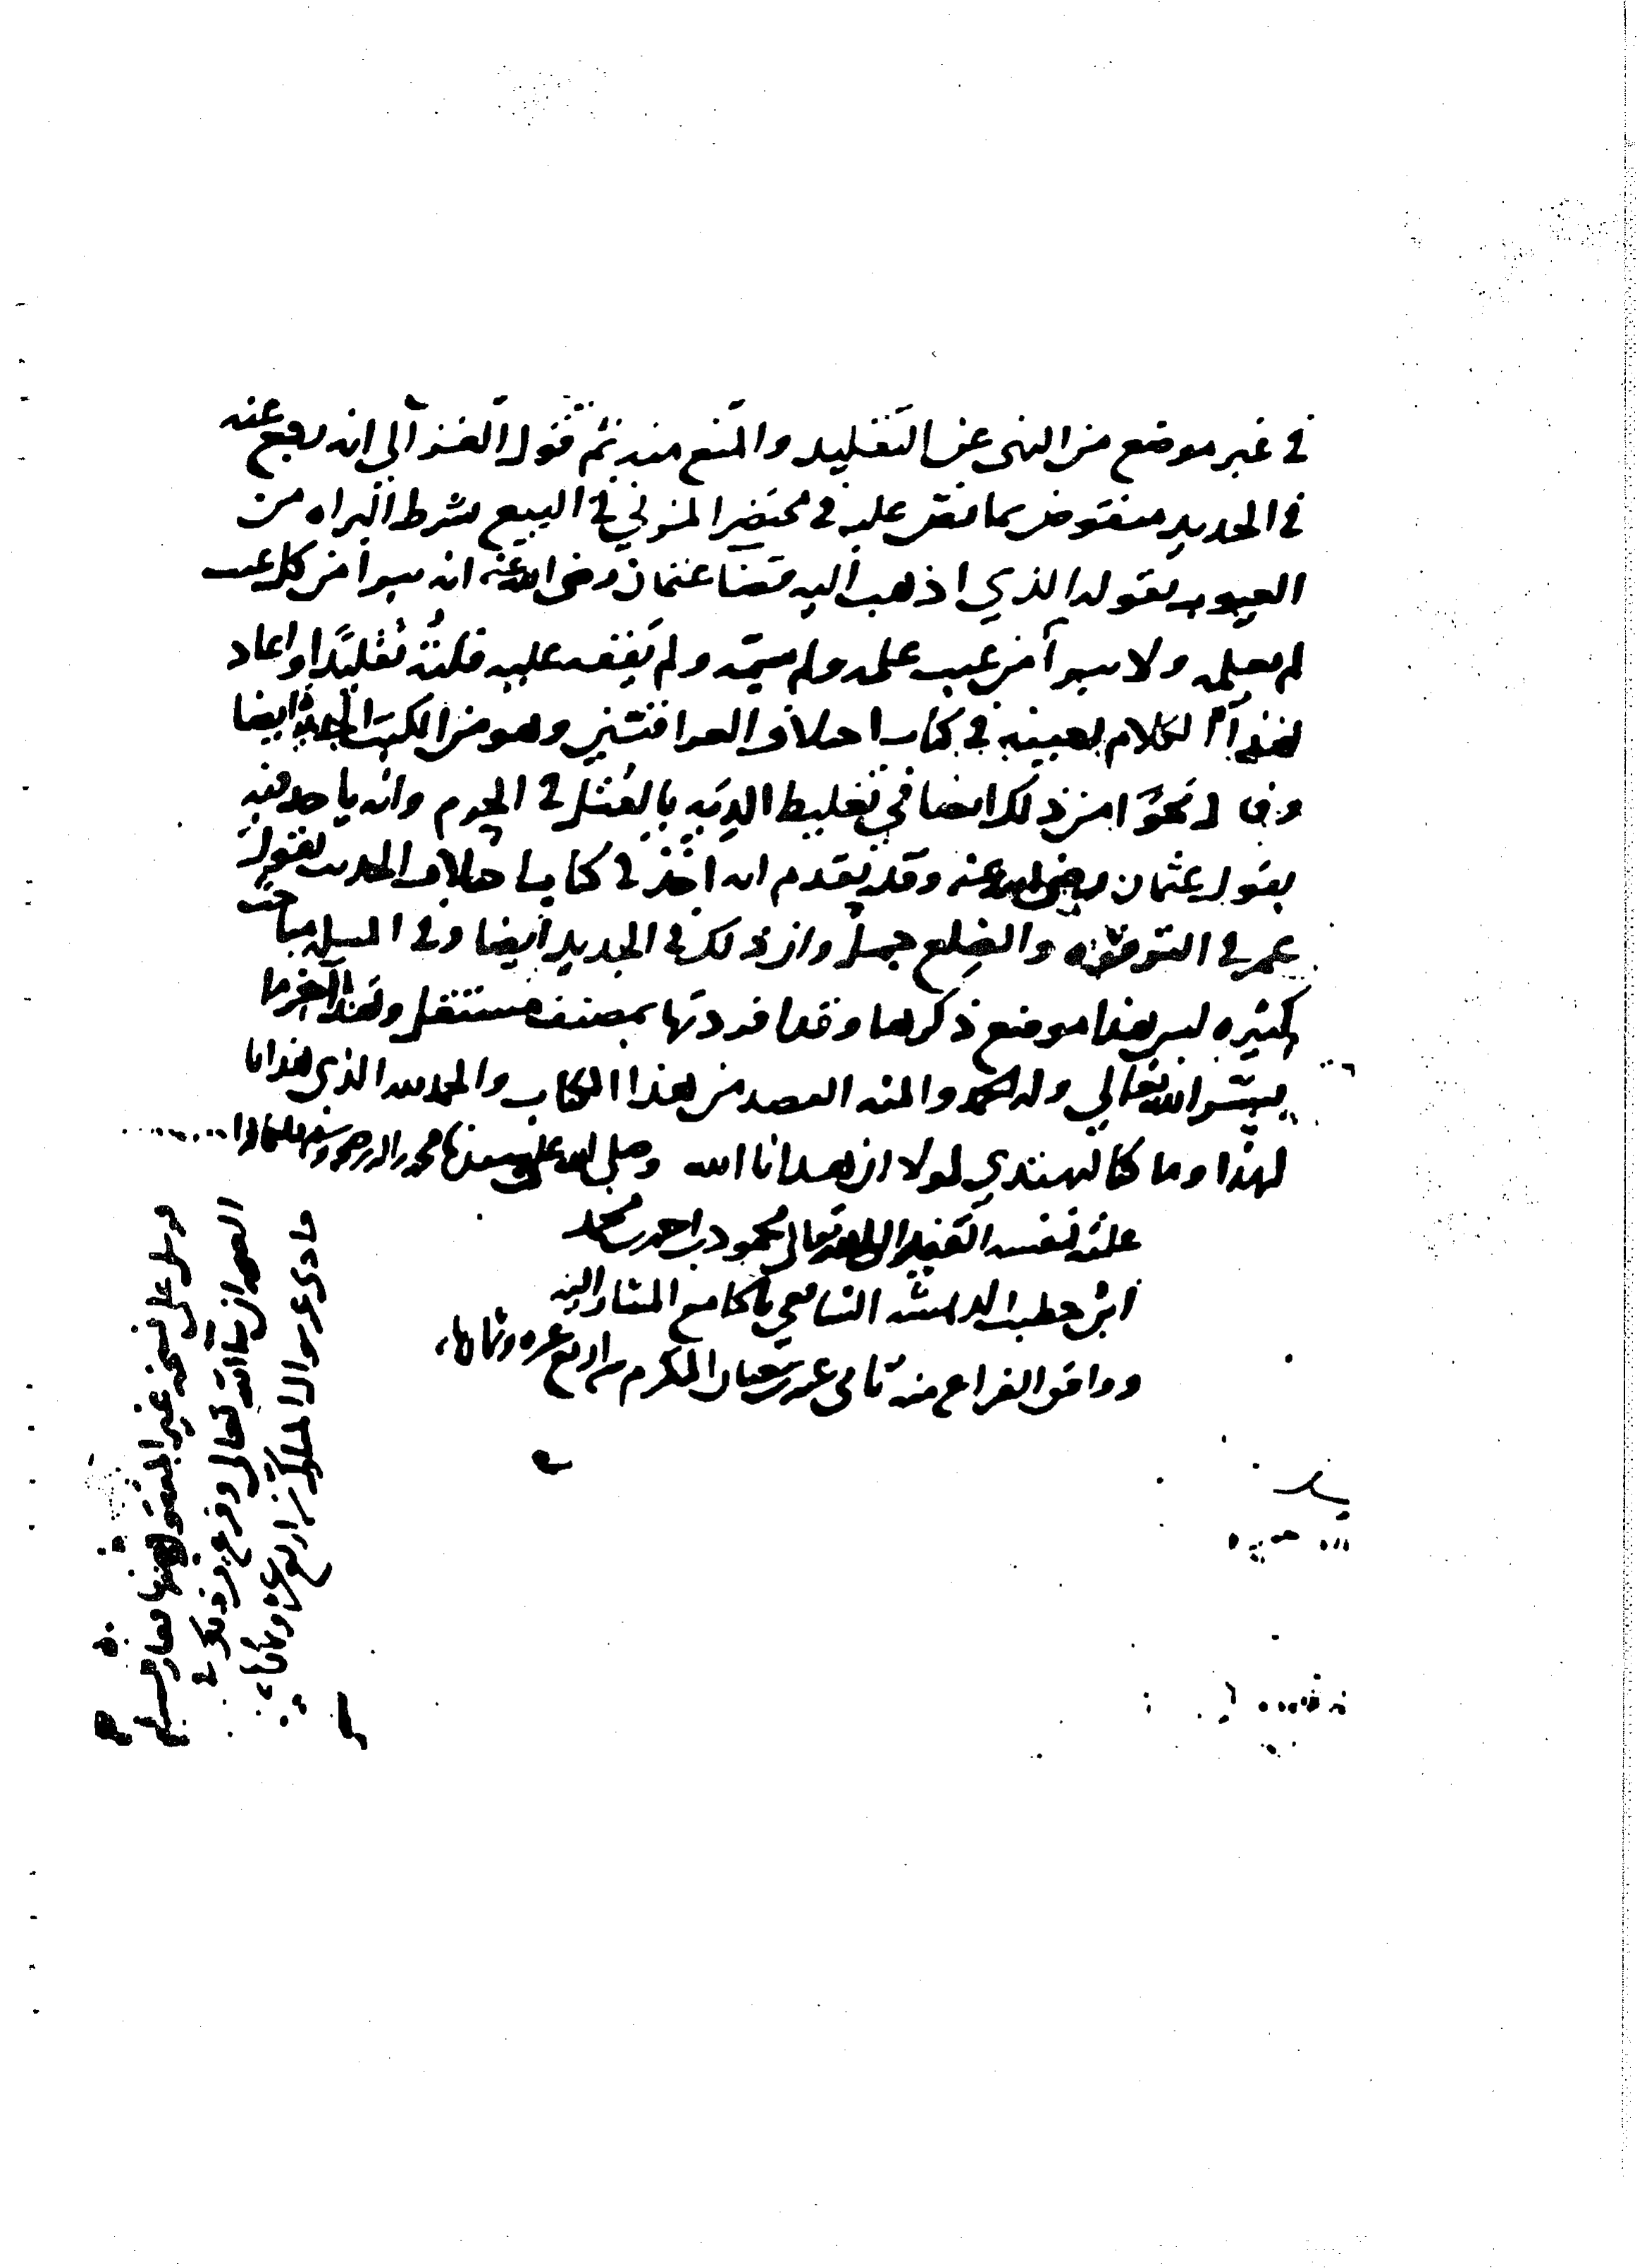 في غير موضع من النهي عن التقليد والمنع منه ثم قول الغزالي انه رجع عنه
في الجديد منقوض بما نص عليه في مختصر المزني في البيع بشرط البراه من
العيوب بقوله الذي اذهب اليه قضا عثمان رضي الله عنه انه يبرا من كل عيب
لم يعلمه ولا يبرا من عيب علمه ولم يسمه ولم يقفه عليه قلته تقليدا واعاد
هذا الكلام بعينه في كتاب اختلاف العراقيين وهو من الكتب الجديدة ايضا
وقال نحوا من ذلك ايضا في تغليظ الديه بالقتل في الحرم وانه ياخذ فيه
بقول عثمان رضي الله عنه وقد تقدم انه اخذ في كتاب اختلاف الحديث بقول
عمر في الترقوه والضلع جمل وان ذلك في الجديد ايضا وفي المسله مباحث
كثيره ليس هذا موضع ذكرها وقد افردتها بمصنف مستقل وهذا اخر ما
يسر الله تعالي وله الحمد والمنه القصد من هذا الكتاب والحمد لله الذي هدانا
لهذا وما كنا لنهتدي لولا ان هدانا الله وصلى الله على سيدنا محمد واله وصحبه وسلم
علقه لنفسه الفقير الى الله تعالى محمود بن احمد بن محمد
ابن خطيب الدهشه الشافعي بالجامع المشار اليه
ووافق الفراغ منه ثاني عشر شعبان المكرم سنه اربع عشره وثمانمايه
على نسخه غير المنقول منها
ان شا الله تعالى وفرغ من ذلك في
حادي عشر
اربع عشره وثمانمايه